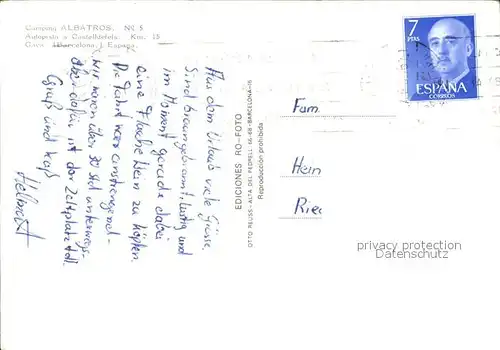 Camping ALBATROS. Nº 5
Autopista a Castelldefels. Km. 15
Gavá (Barcelona) España
Aus dem Urlaub viele Grüsse
Sind braungebrannt, lustig und
im Moment gerade dabei
eine Flasche Wein zu köpfen.
Die Fahrt war anstrengend -
wir waren über 30 Std unterwegs.
aber dafür ist der Zeltplatz toll.
Gruß und Kuß
Helmut
EDICIONES RO-FOTO
OTTO REUSS-ALTA DEL PEDRELL 66-68-BARCELONA-16
Reproducción prohibida
7
PTAS
ESPAÑA
CORREOS
Fam.
Hein
Ried
privacy protection
Datenschutz